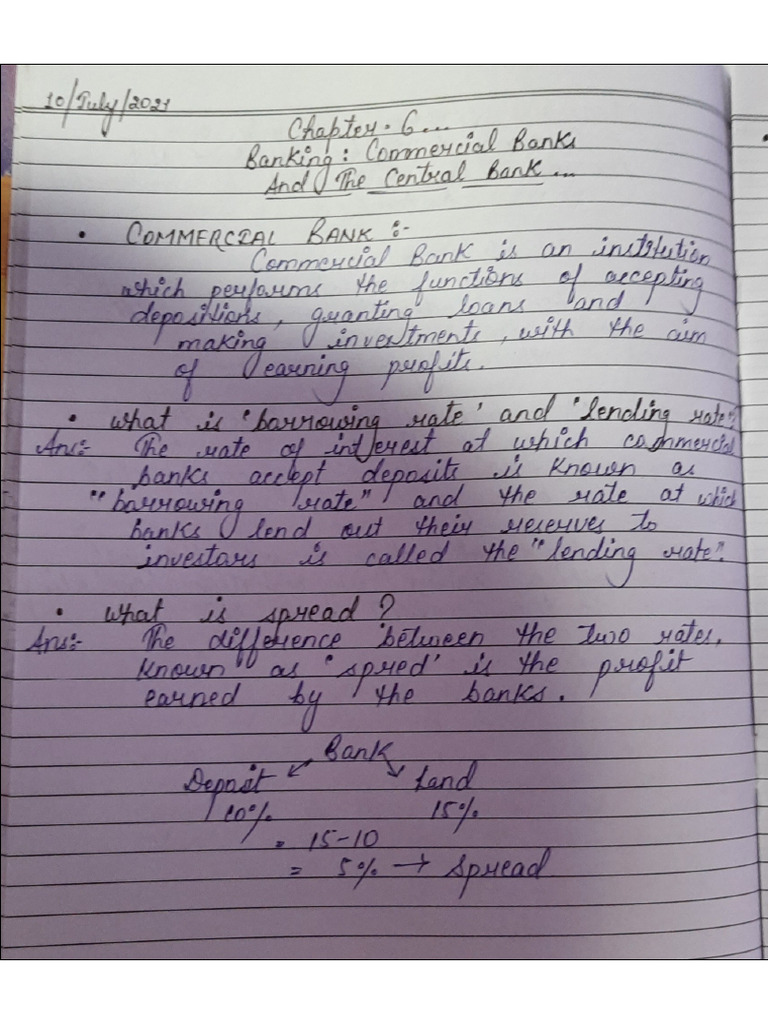 10/July/2021
Chapter. 6...
Banking: Commercial Banks
And The Central Bank...
• COMMERCIAL BANK :-
Commercial Bank is an institution
which performs the functions of accepting
depositions, granting loans and
making investments, with the aim
of earning profits.
• What is 'borrowing rate' and 'lending rate'?
Ans:- The rate of interest at which commercial
banks accept deposits is known as
"borrowing rate" and the rate at which
banks lend out their reserves to
investars is called the "lending rate".
• What is spread?
Ans:- The difference between the two rates,
known as 'spred' is the profit
earned by the banks.
Bank
Deposit ↙ ↘ Land
10% 15%
= 15-10
= 5% → Spread